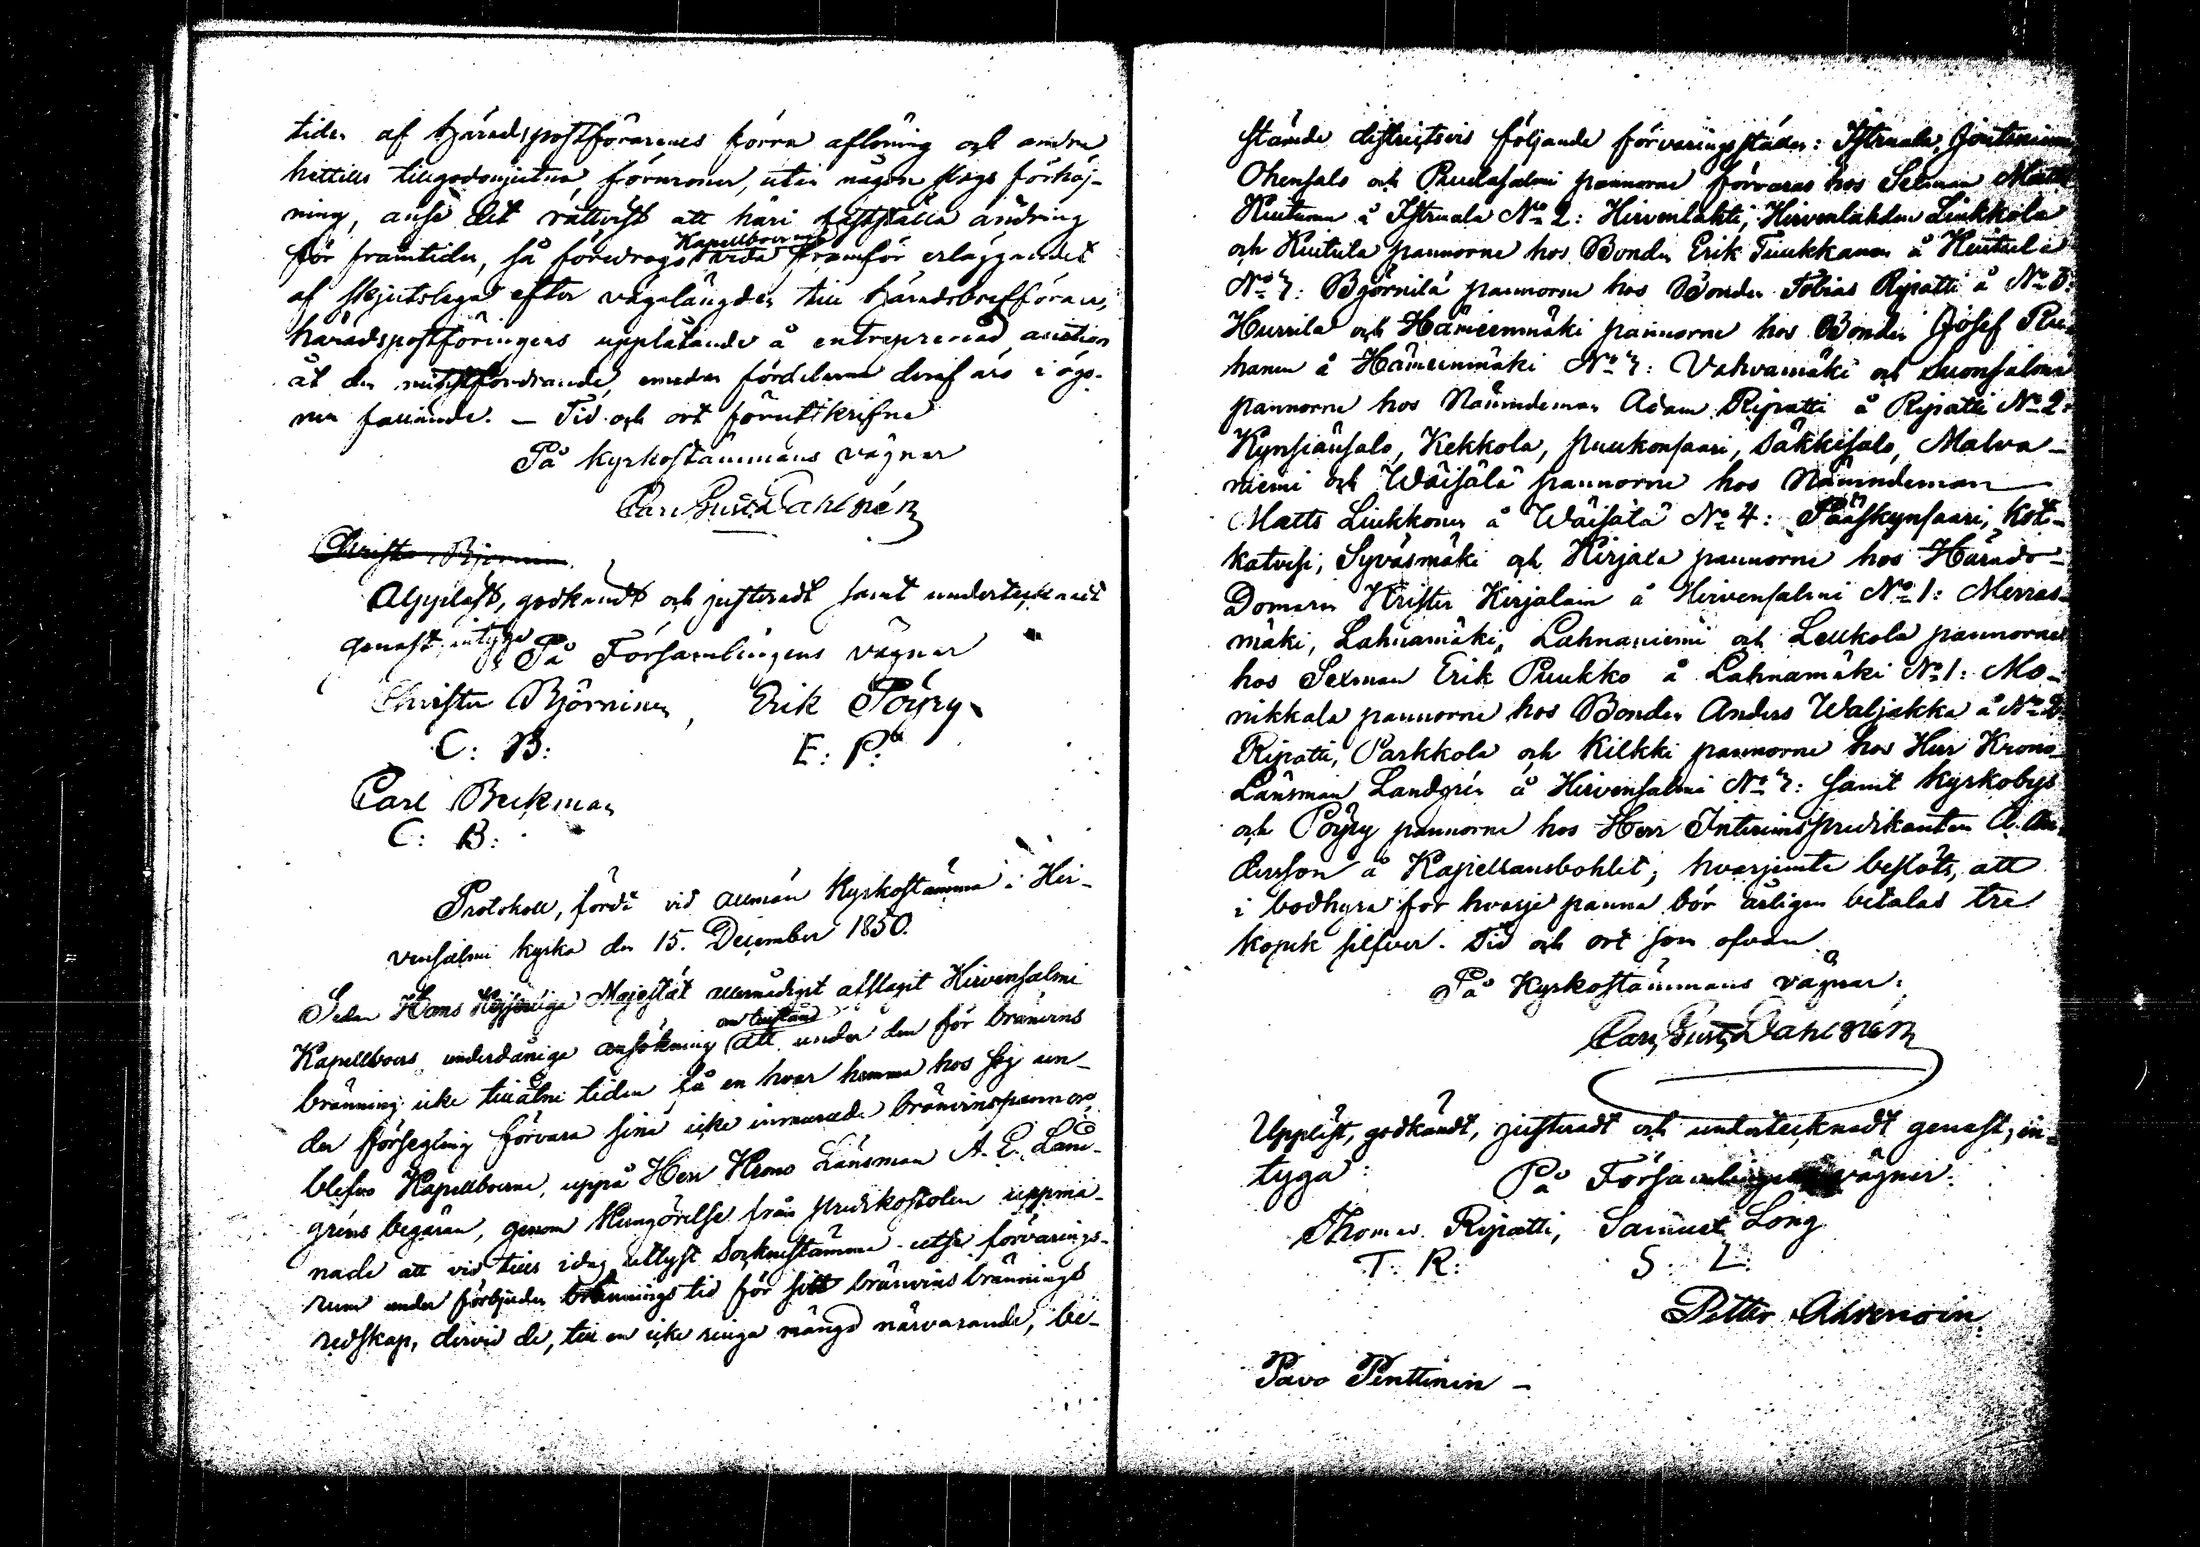 tider af häradspostförarenes förra aflöning och andra
hittills tillgodonjutna förmoner, utan någon slags förhöj-
ning, anse det rättvist att häri fastställa ändring
för framtiden, så föredrogs Kapellboerne framför erläggandet
af skjutslega efter vägalängden till häradsbrefföraren,
häradspostföringens upplåtande å entreprenad auction
åt den minstfordrande, emedan fördelarna deraf äro i ögo-
nen fallande. – Tid och ort förutskrifne
På Kyrkostämmans vägnar
Carl Gust. Dahlnén
Christer Björninen
Uppläst, godkändt och justeradt samt undertecknadt
genast, intyga
På Församlingens vägnar
Christer Björninen, Erik Pöyry
C: B: E: P:
Carl Beckman
C: B:
Protokoll, fördt vid allmän Kyrkostämma i Hir-
vensalmi kyrka den 15. December 1850.
Sedan Hans Kejserliga Majestät allernådigst afslagit Hirvensalmi
Kapellboers underdåniga ansökning om tillstånd att under den för bränvins
bränning icke tillåtne tiden få en hvar hemma hos sig un-
der försegling förvara sina icke inmurade bränvinspannor,
blefvo Kapellboerne, uppå Herr Krono Länsman A. E. Land-
gréns begäran, genom Kungörelse från predikostolen uppma-
nade att vid till idag utlyst Sockenstämma utse förvarings-
rum under förbjuden brännings tid för sitt bränvins brännings
redskap, dervid de, till en icke ringa mängd närvarande, be-
stämde districtsvis följande förvaringsställen: Istruala,
Ohensalo och Puulasalmi pannorne förvaras hos Sexman Matts
Kiutuna å Istruala No 2: Hirvenlahti, Hirvenlahden Liukkola
och Kiutula pannorne hos Bonden Erik Tuukkanen å Kiutula
No 7: Björnilä pannorne hos Bonden Tobias Ripatti å No 3:
Hurrila och Hämeenmäki pannorne hos Bonden Josef
hanen å Hämeenmäki No 7: Vahvamäki och Suonsalmi
pannorne hos Nämndeman Adam Ripatti å Ripatti No 2:
Kynsiänsalo, Kekkola, Puukonsaari, Säkkisalo, Malva-
niemi och Wäisälä pannorne hos Nämndeman
Matts Liukkonen å Wäisälä No 4: Pääskynsaari, Kot-
katvesi, Syväsmäki och Kirjala pannorne hos Härads-
Domaren Krister Kirjalain å Hirvensalmi No 1: Merras-
mäki, Lahnamäki, Lahnaniemi och Leukola pannorne
hos Sexman Erik Puukko å Lahnamäki No 1: Mo-
nikkala pannorne hos Bonden Anders Waljakka å No 2:
Ripatti, Parkkola och Kilkki pannorne hos Herr Krono
Länsman Landgrén å Hirvensalmi No 7: samt Kyrkobys
och Pöyry pannorne hos Herr Interimspredikanten A. An-
dersson å Kapellansbohlet; hvarjemte beslöts, att
i bodhyra för hvarje panna bör årligen betalas tre
kopek silfver. Tid och ort som ofvan
På Kyrkostämmans vägnar:
Carl Gust. Dahlnén
Uppläst, godkändt, justeradt och undertecknadt genast, in-
tyga: På Församlingens vägner:
Thomas Ripatti, Samuel Long
T: R: S: L:
Petter Ahvenain
Pavo Penttinin –